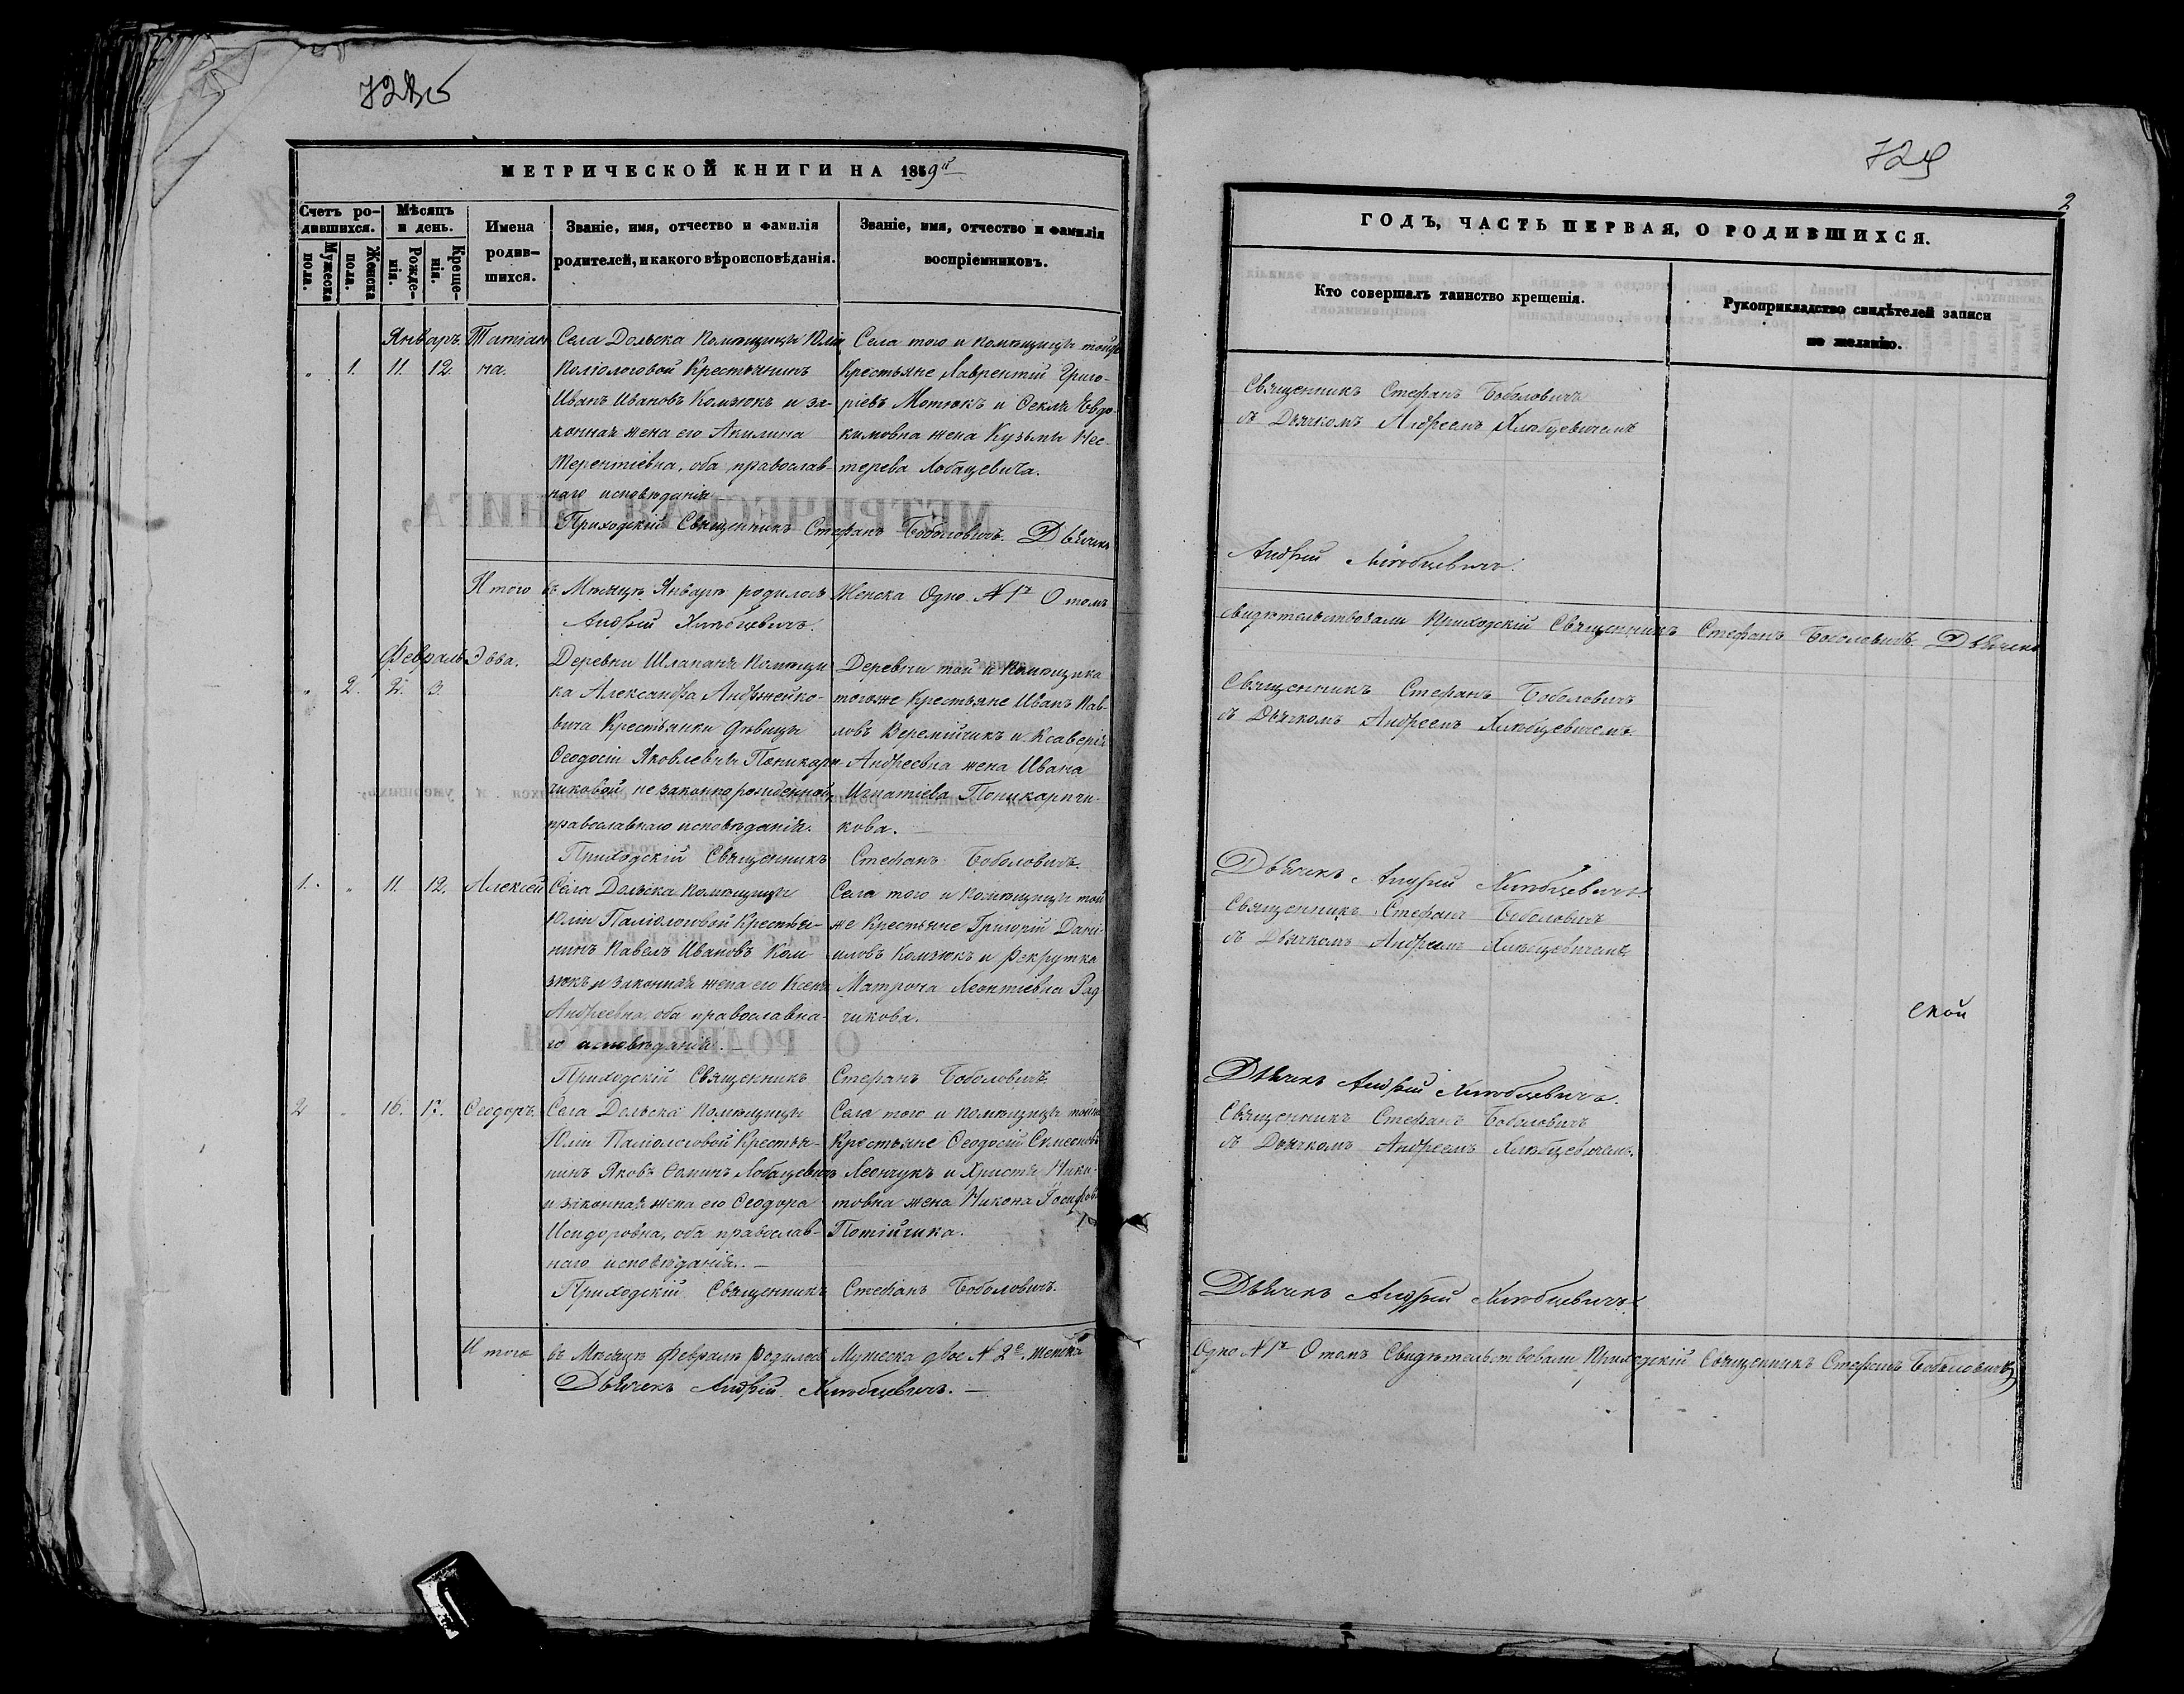 728об
МЕТРИЧЕСКОЙ КНИГИ НА 1859й
Счетъ ро-
дившихся.
Мѣсяцъ
и день.
Имена
родив-
шихся.
Званіе, имя, отчество и фамилія
родителей, и какого вѣроисповѣданія.
Званіе, имя, отчество и фамилія
воспріемниковъ.
Мужеска
пола.
Женска
пола.
Рожде-
нія.
Креще-
нія.
Январь
" 1. 11. 12.
Татіа
на.
Села Дольска Помѣщицы Юліи
Поліологовой Крестьянинъ
Иванъ Ивановъ Комзюкъ и за-
конная жена его Акилина
Терентіевна, оба православ-
наго исповѣданія
Села того и помѣщицы тойже
Крестьяне Лаврентій Григо-
ріевъ Мотюкъ и Ѳекла Евдо-
кимовна жена Кузьмы Нес-
терева Лобацевича.
Приходскій Священникъ Стефанъ Боболовичъ. Дьячекъ
Итого въ Мѣсяцѣ Январѣ родилось Женска Одно № 1е О томъ
Андрей Хлѣбцевичъ.
Февраль
" 2. 2. 3.
Эвва.
Деревни Шлапань Помѣщи
ка Александра Андржейко-
вича Крестьянки дѣвицы
Ѳеодосіи Яковлевны Поникарп-
чиковой незаконнорожденной,
православнаго исповѣданія.
Деревни той и Помѣщика
тогоже Крестьяне Иванъ Пав-
ловъ Веремійчикъ и Ксаверія
Андреевна жена Ивана
Игнатіева Поникарпчи-
кова.
Приходскій Священникъ Стефанъ Боболовичъ.
1. " 11. 12. Алексѣй
Села Дольска Помѣщицы
Юліи Паліологовой Крестья-
нинъ Павелъ Ивановъ Ком-
зюкъ и законная жена его Ксенія
Андреевна, оба православна-
го исповѣданія.
Села того и помѣщицы той
же Крестьяне Григорій Дани-
иловъ Комзюкъ и рекрутка
Матрона Леонтіевна Рад-
чикова.
Приходскій Священникъ Стефанъ Боболовичъ.
2 " 16. 17. Ѳеодоръ.
Села Дольска Помѣщицы
Юліи Паліологовой Крестья-
нинъ Яковъ Ѳоминъ Лобацевичъ
и законная жена его Ѳеодора
Исидоровна, оба православ-
наго исповѣданія.
Села того и помѣщицы тойже
Крестьяне Ѳеодосій Симеоновъ
Леончукъ и Христя Ники-
товна жена Никона Іосифова
Потійчика.
Приходскій Священникъ Стефанъ Боболовичъ.
Итого въ Мѣсяцѣ Февралѣ родилось Мужеска двое № 2е. Женска
Дьячекъ Андрей Хлѣбцевичъ.
729
2
ГОДЪ, ЧАСТЬ ПЕРВАЯ, О РОДИВШИХСЯ.
Кто совершалъ таинство крещенія.
Рукоприкладство свидѣтелей записи
по желанію.
Священникъ Стефанъ Боболовичъ
съ Дьячкомъ Андреемъ Хлѣбцевичемъ
Андрей Хлѣбцевичъ.
Свидѣтельствовали Приходскій Священникъ Стефанъ Боболовичъ. Дьячекъ
Священникъ Стефанъ Боболовичъ
съ Дьячкомъ Андреемъ Хлѣбцевичемъ.
Дьячекъ Андрей Хлѣбцевичъ.
Священникъ Стефанъ Боболовичъ
съ Дьячкомъ Андреемъ Хлѣбцевичемъ
ской
Дьячекъ Андрей Хлѣбцевичъ.
Священникъ Стефанъ Боболовичъ
съ Дьячкомъ Андреемъ Хлѣбцевичемъ.
Дьячекъ Андрей Хлѣбцевичъ
Одно № 1е О томъ Свидѣтельствовали Приходскій Священникъ Стефанъ Боболовичъ